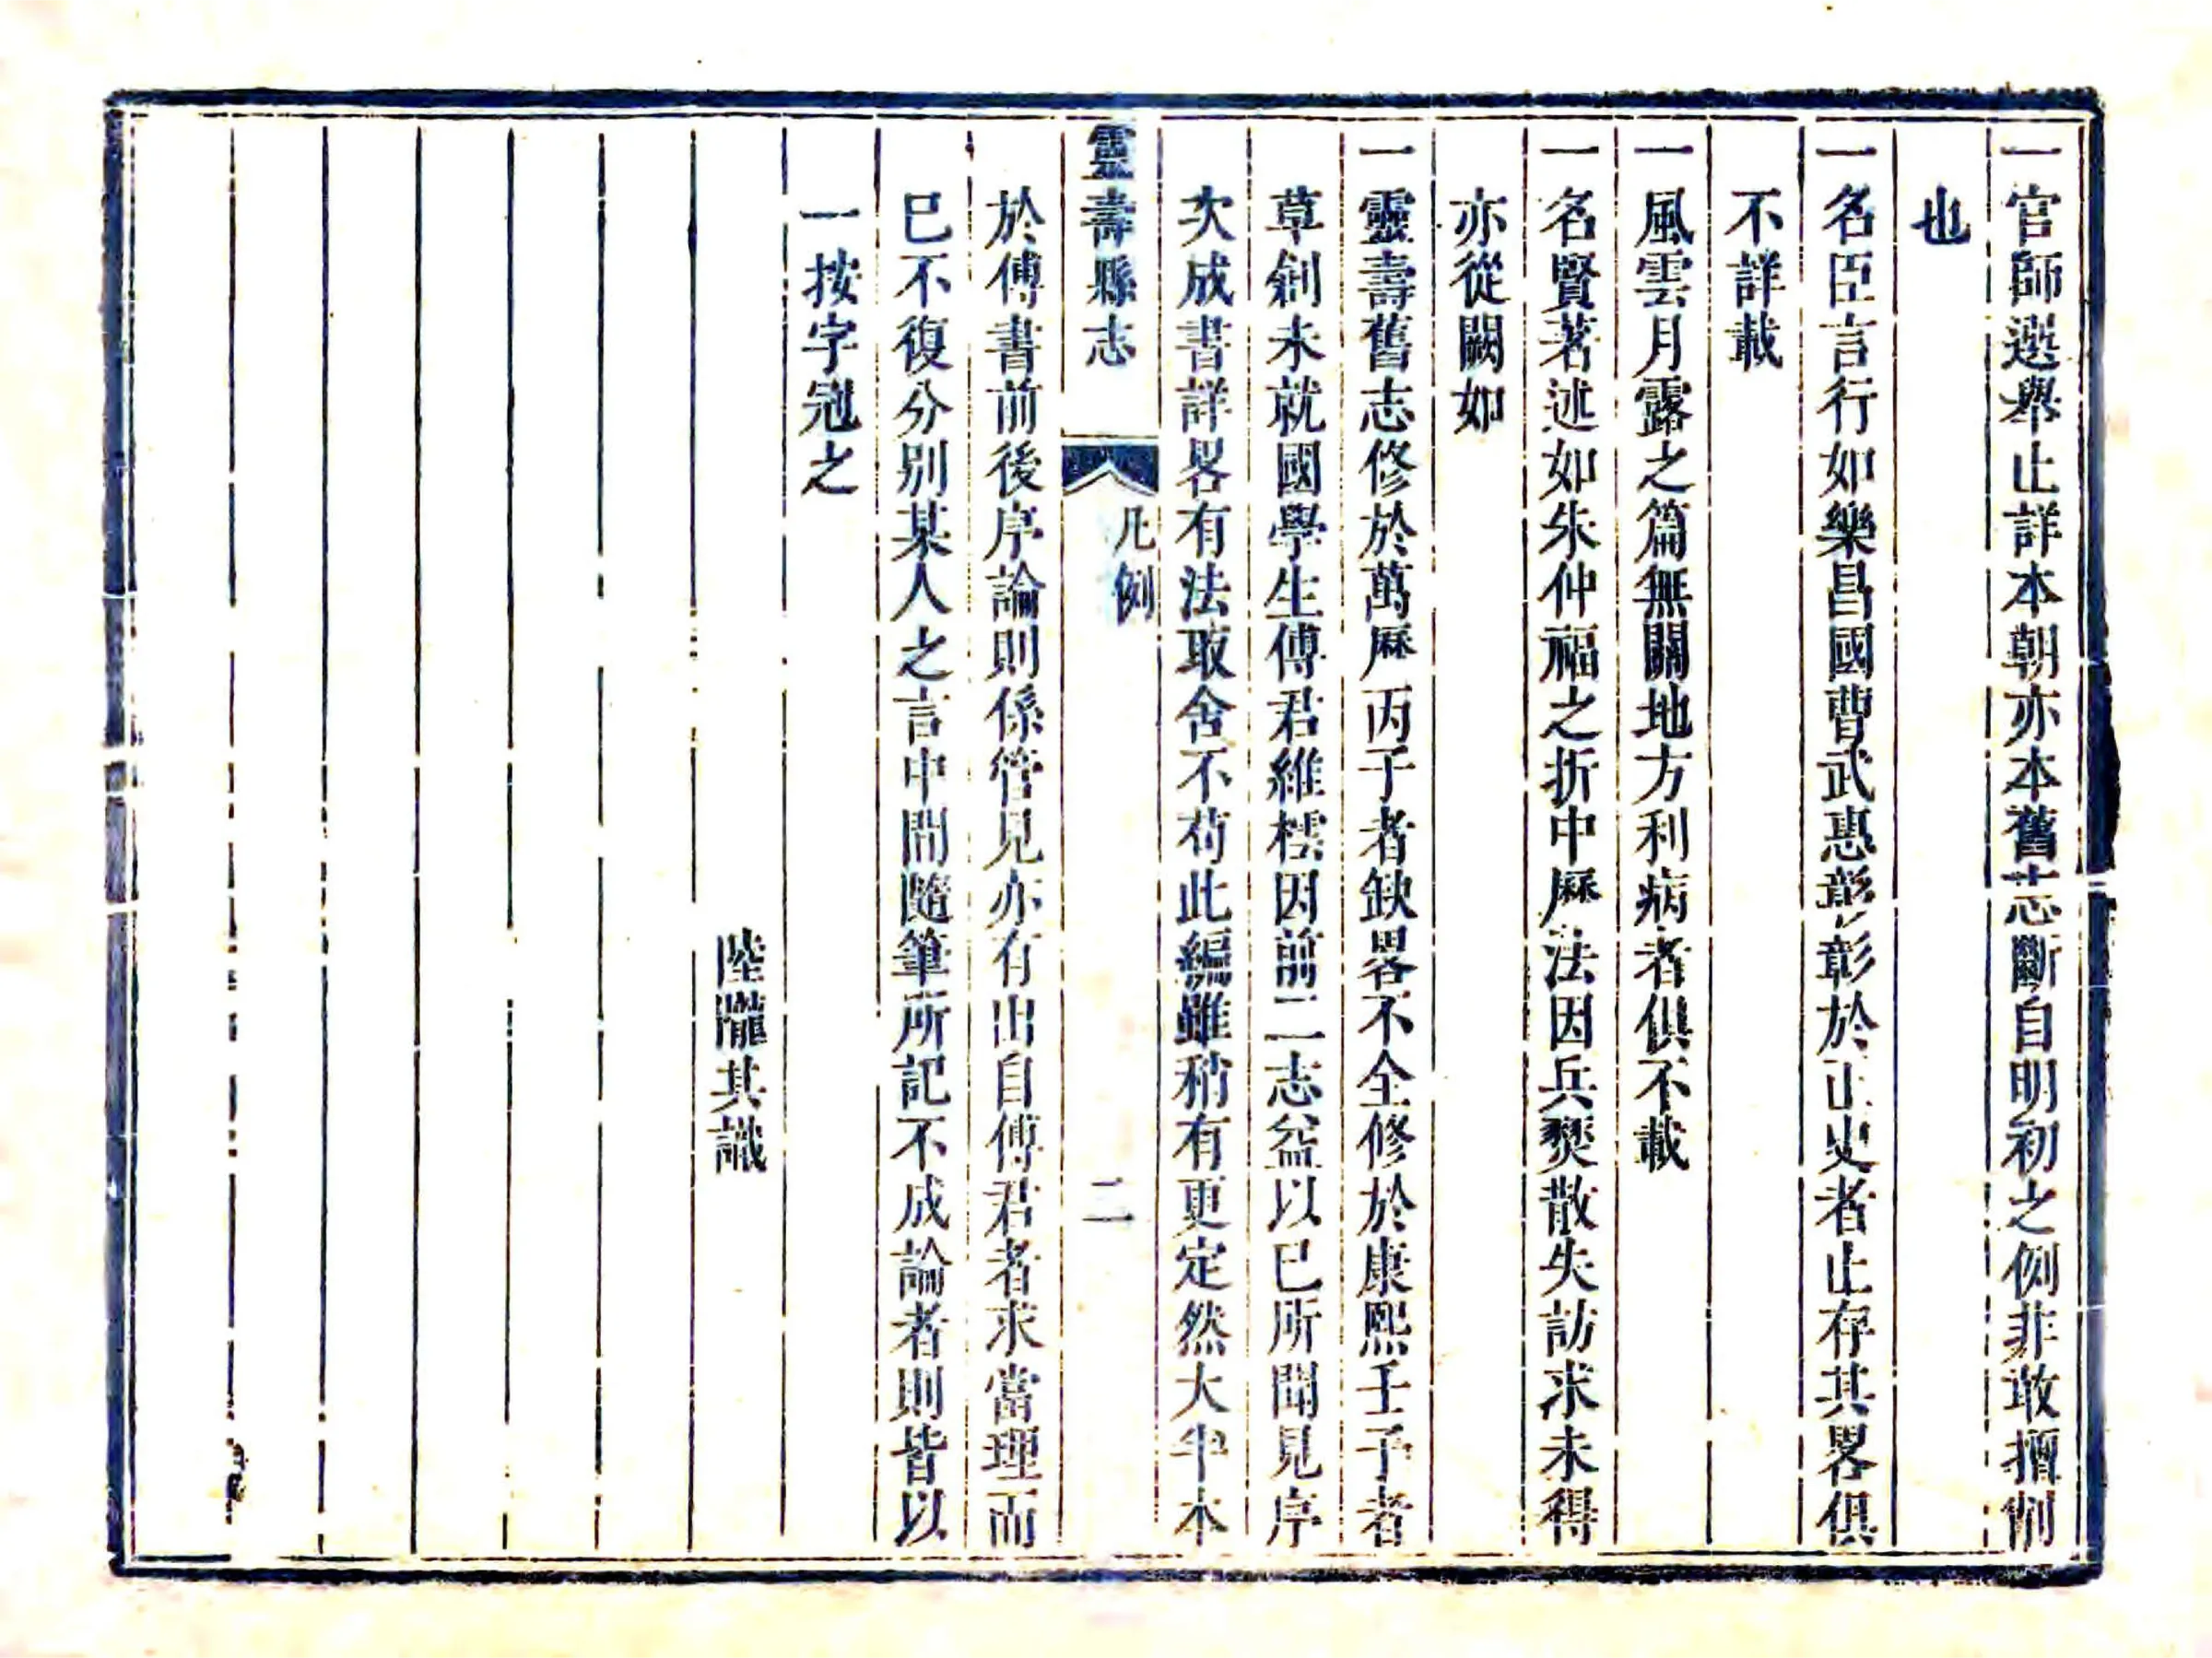 一官師選舉止詳本朝亦本舊志斷自明初之例非敢擅削
也
一名臣言行如樂昌國曹武惠彰彰於正史者止存其畧俱
不詳載
一風雲月露之篇無關地方利病者俱不載
一名賢著述如朱仲福之折中厤法因兵燹散失訪求未得
亦從闕如
一靈壽舊志修於萬厤丙子者缺畧不全修於康熙壬子者
草創未就國學生傅君維橒因前二志益以已所聞見序
次成書詳畧有法取舍不苟此編雖稍有更定然大半本
靈壽縣志
凡例
二
於傅書前後序論則係管見亦有出自傅君者求當理而
已不復分別某人之言中間隨筆所記不成論者則皆以
一按字冠之
陸隴其識